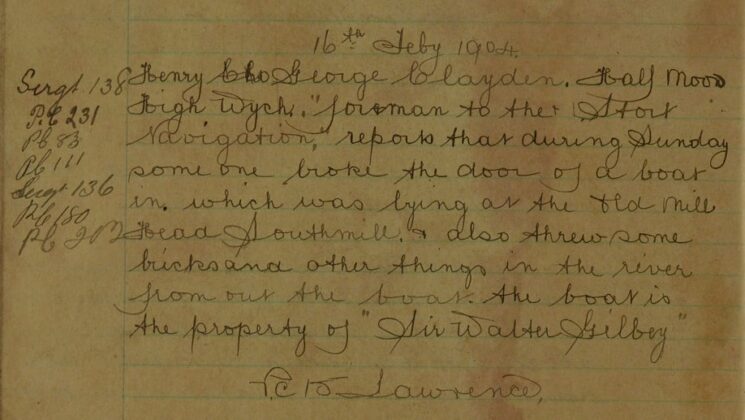 16th Feby 1904.
Sergt 138
P.C 231
PC 83
PC 111
Sergt 136
PC 180
Henry George Clayden. Half Moon
High Wych. "foreman to the Stort
Navigation," reports that during Sunday
some one broke the door of a boat
in. which was lying at the Old Mill
Head Southmill. & also threw some
bricks and other things in the river
from out the boat. the boat is
the property of "Sir Walter Gilbey"
P.C Lawrence.